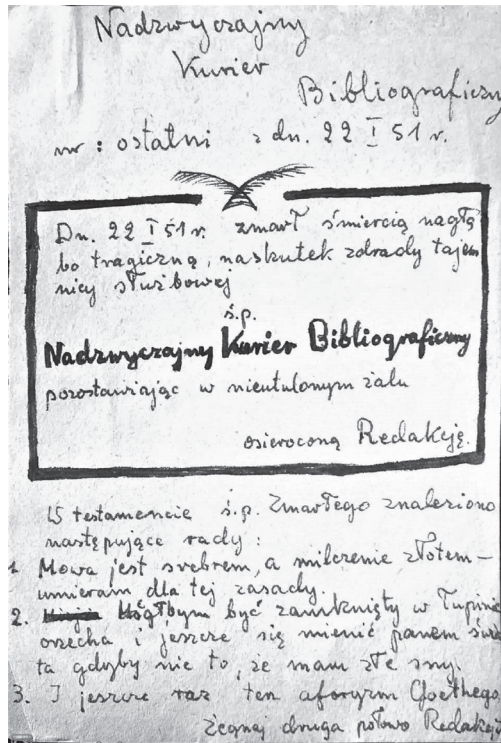 Nadzwyczajny
Kurier
Bibliograficzny
nr : ostatni z dn. 22 I 51 r.
Dn. 22 I 51 r. zmarł śmiercią nagłą
bo tragiczną, naskutek zdrady tajem
nicy służbowej
ś.p.
Nadzwyczajny Kurier Bibliograficzny
pozostawiając w nieutulonym żalu
osieroconą Redakcję.
W testamencie ś.p. Zmarłego znaleziono
następujące rady :
1 Mowa jest srebrem, a milczenie złotem –
umieram dla tej zasady.
2. Mógłbym być zamknięty w łupinie
orzecha i jeszcze się mienić panem świa
ta gdyby nie to, że mam złe sny.
3. I jeszcze raz ten aforyzm Goethego
Żegnaj druga połowo Redakcji